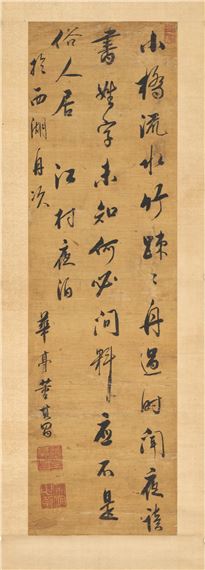 小橋流水竹踈〻舟過時聞夜讀
書姓字未知何必問料應不是
俗人居　江村夜泊
於西湖舟次
華亭董其昌